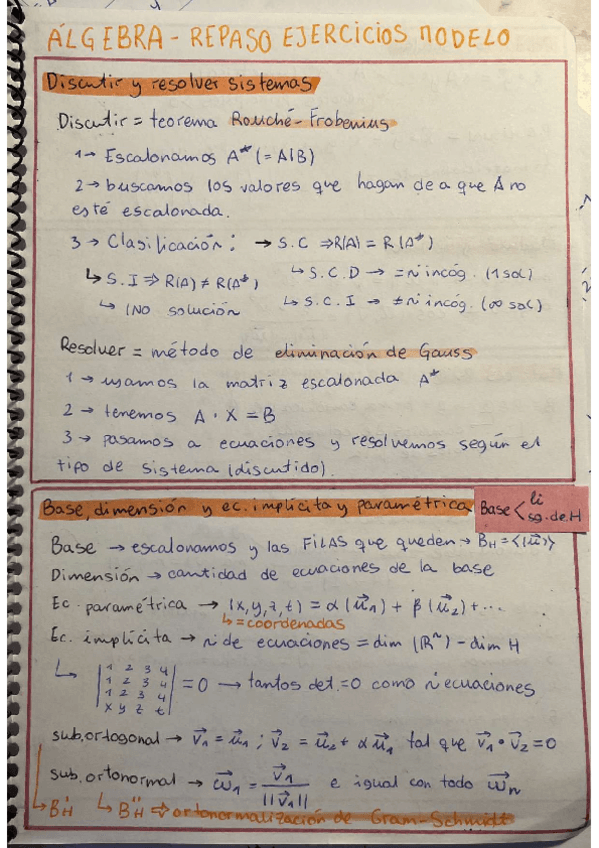 ÁLGEBRA - REPASO EJERCICIOS MODELO
Discutir y resolver sistemas
Discutir = teorema Rouché-Frobenius
1→ Escalonamos A* (= A|B)
2→ buscamos los valores que hagan de a que A no
esté escalonada.
3 → Clasificación: → S.C ⇒ R(A) = R(A*)
↳ S.I ⇒ R(A) ≠ R(A*) ↳ S.C.D → = nº incóg. (1 sol)
↳ (No solución ↳ S.C.I → ≠ nº incóg. (∞ sol)
Resolver = método de eliminación de Gauss
1 → usamos la matriz escalonada A*
2 → tenemos A · X = B
3 → pasamos a ecuaciones y resolvemos según el
tipo de sistema (discutido).
Base, dimensión y ec. implícita y paramétrica
Base < li
sg. de H
Base → escalonamos y las FILAS que queden → B_H = <(u⃗)>
Dimensión → cantidad de ecuaciones de la base
Ec. paramétrica → (x,y,z,t) = α(u⃗₁) + β(u⃗₂) + ...
↳ = coordenadas
Ec. implícita → nº de ecuaciones = dim (ℝⁿ) - dim H
↳ | 1 2 3 4 |
| 1 2 3 4 |
| 1 2 3 4 | = 0 → tantos det. = 0 como nº ecuaciones
| x y z t |
sub. ortogonal → v⃗₁ = u⃗₁ ; v⃗₂ = u⃗₂ + α u⃗₁ tal que v⃗₁ · v⃗₂ = 0
sub. ortonormal → w⃗₁ = v⃗₁ / ||v⃗₁|| e igual con todo w⃗ₙ
↳ B'_H ↳ B''_H ⇒ ortonormalización de Gram-Schmidt